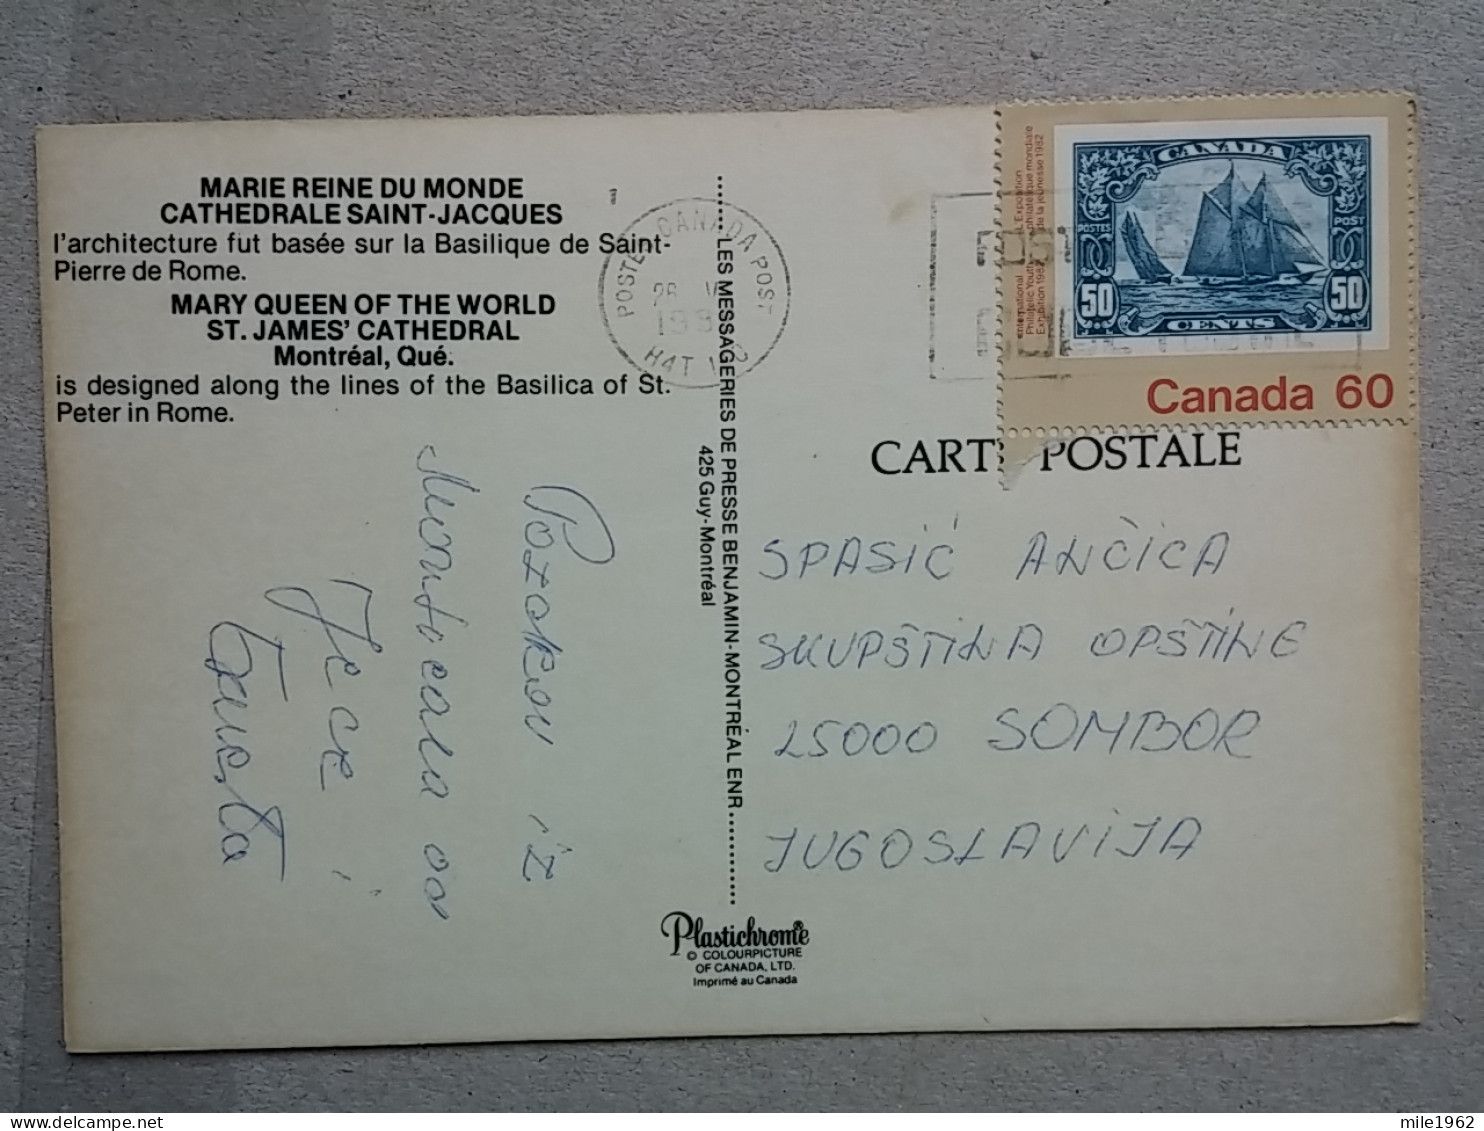 MARIE REINE DU MONDE
CATHEDRALE SAINT-JACQUES
l'architecture fut basée sur la Basilique de Saint-
Pierre de Rome.
MARY QUEEN OF THE WORLD
ST. JAMES' CATHEDRAL
Montréal, Qué.
is designed along the lines of the Basilica of St.
Peter in Rome.
Pozdrav iz
Montreala od
Jece i
LES MESSAGERIES DE PRESSE BENJAMIN-MONTRÉAL ENR
425 Guy-Montréal
POSTES CANADA POST
H4T
International
Philatelic Youth
Exhibition 1982
L'Exposition
philatélique mondiale
de la jeunesse 1982
CANADA
POSTES
POST
50
50
CENTS
Canada 60
CARTE POSTALE
SPASIĆ ANČICA
SKUPŠTINA OPŠTINE
25000 SOMBOR
JUGOSLAVIJA
Plastichrome
© COLOURPICTURE
OF CANADA, LTD.
Imprimé au Canada
mile1962